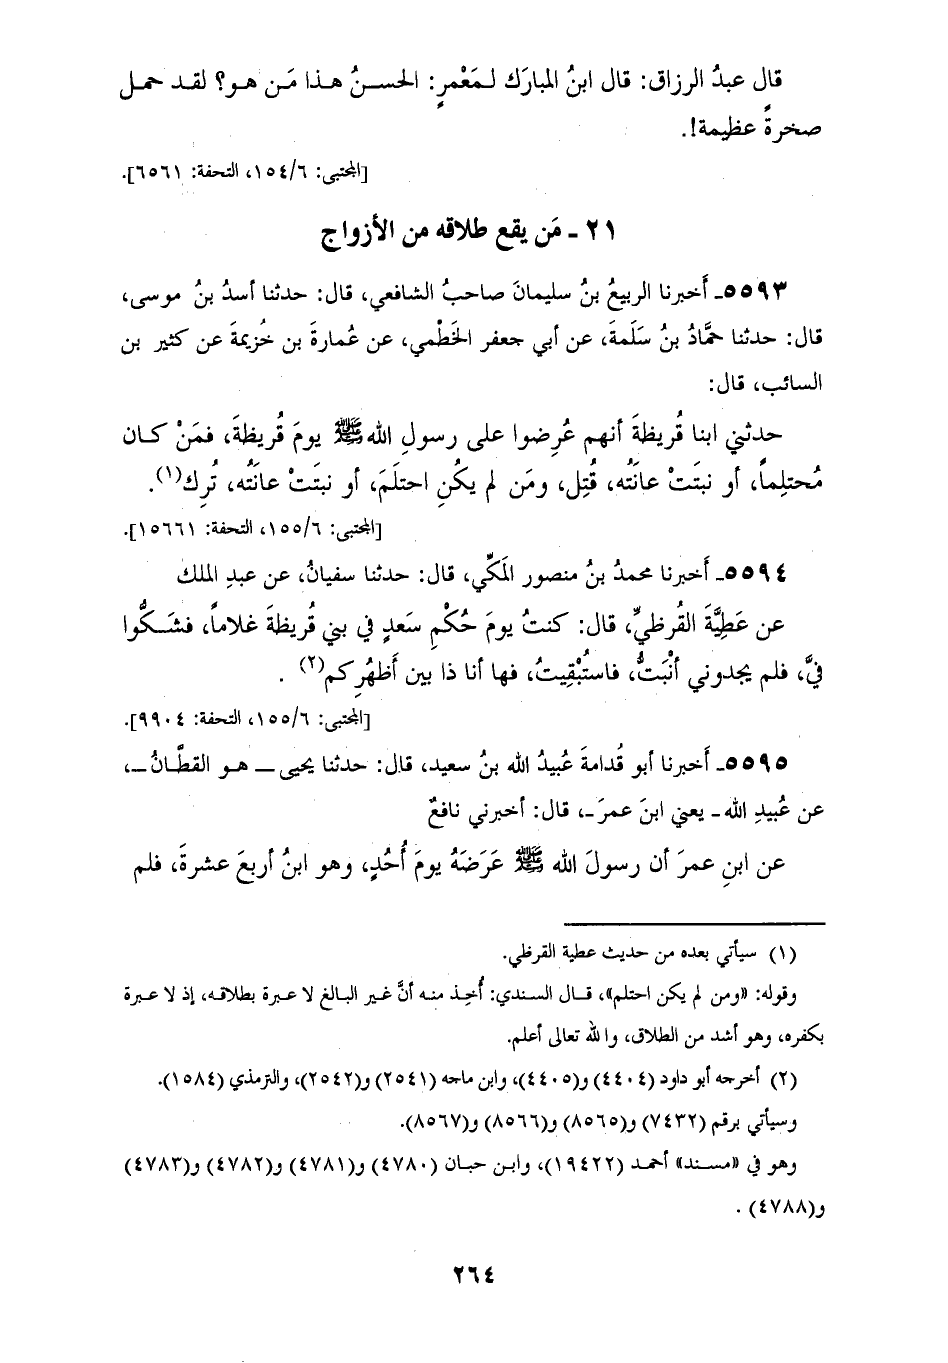 قال عبدُ الرزاق: قال ابنُ المبارَك لـمَعْمرٍ: الحسـنُ هـذا مَـن هـو؟ لقـد حمـل
صخرةً عظيمة!.
[المجتبى: ١٥٤/٦، التحفة: ٦٥٦١].
٢١ - مَن يقع طلاقه من الأزواج
٥٥٩٣ـ أَخبرنا الربيعُ بنُ سليمانَ صاحبُ الشافعي، قال: حدثنا أسدُ بنُ موسى،
قال: حدثنا حمَّادُ بنُ سَلَمةَ، عن أبي جعفر الخَطْمي، عن عُمارةَ بن خُزيمةَ عن كثير بن
السائب، قال:
حدثني ابنا قُريظةَ أنهم عُرِضوا على رسولِ الله ﷺ يومَ قُريظة، فمَنْ كـان
مُحتلِماً، أو نبتَتْ عانَتُه، قُتِل، ومَن لم يكُنِ احتلَمَ، أو نبتَتْ عانَتُه، تُرِك(١).
[المجتبى: ١٥٥/٦، التحفة: ١٥٦٦١].
٥٥٩٤ـ أَخبرنا محمدُ بنُ منصور المَكِّي، قال: حدثنا سفيانُ، عن عبدِ الملك
عن عَطِيَّةَ القُرظيِّ، قال: كنتُ يومَ حُكْمِ سَعدٍ في بني قُريظةَ غلاماً، فشَـكُّوا
فيَّ، فلم يجدوني أَنْبَتُّ، فاستُبْقِيتُ، فها أنا ذا بين أَظهُرِكم(٢) .
[المجتبى: ١٥٥/٦، التحفة: ٩٩٠٤].
٥٥٩٥ـ أَخبرنا أبو قُدامةَ عُبيدُ الله بنُ سعيد، قال: حدثنا يحيى ـ هـو القطَّـانُ ـ،
عن عُبيدِ الله ـ يعني ابنَ عمرَ ـ، قال: أخبرني نافعٌ
عن ابنِ عمرَ أن رسولَ الله ﷺ عَرَضَهُ يومَ أُحُدٍ، وهو ابنُ أربعَ عشرةَ، فلم
(١) سيأتي بعده من حديث عطية القرظي.
وقوله: «ومن لم يكن احتلم»، قـال السندي: أُخِذ منه أنَّ غير البالغ لا عبرة بطلاقه، إذ لا عبرة
بكفره، وهو أشد من الطلاق، والله تعالى أعلم.
(٢) أخرجه أبو داود (٤٤٠٤) و(٤٤٠٥)، وابن ماجه (٢٥٤١) و(٢٥٤٢)، والترمذي (١٥٨٤).
وسيأتي برقم (٧٤٣٢) و(٨٥٦٥) و(٨٥٦٦) و(٨٥٦٧).
وهو في «مسـند» أحمـد (١٩٤٢٢)، وابـن حبـان (٤٧٨٠) و(٤٧٨١) و(٤٧٨٢) و(٤٧٨٣)
و(٤٧٨٨) .
٢٦٤